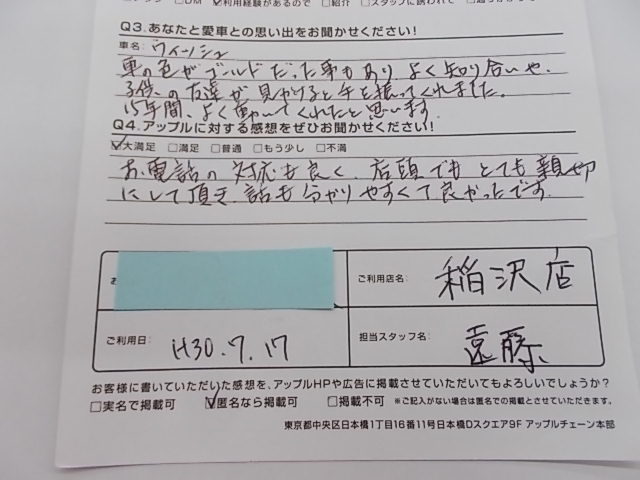 □DM ☑利用経験があるので □紹介 □スタッフに誘われて
Q3.あなたと愛車との思い出をお聞かせください!
車名: ウィッシュ
車の色がゴールドだった事もあり、よく知り合いや、
子供の友達が見かけると手を振ってくれました。
15年間、よく動いてくれたと思います。
Q4.アップルに対する感想をぜひお聞かせください!
☑大満足 □満足 □普通 □もう少し □不満
お電話の対応も良く、店頭でもとても親切
にして頂き話も分かりやすくて良かったです。
ご利用店名: 稲沢店
ご利用日: H30.7.17
担当スタッフ名: 遠藤
お客様に書いていただいた感想を、アップルHPや広告に掲載させていただいてもよろしいでしょうか?
□実名で掲載可 ☑匿名なら掲載可 □掲載不可 ※ご記入がない場合は匿名での掲載とさせていただきます。
東京都中央区日本橋1丁目16番11号日本橋Dスクエア9F アップルチェーン本部